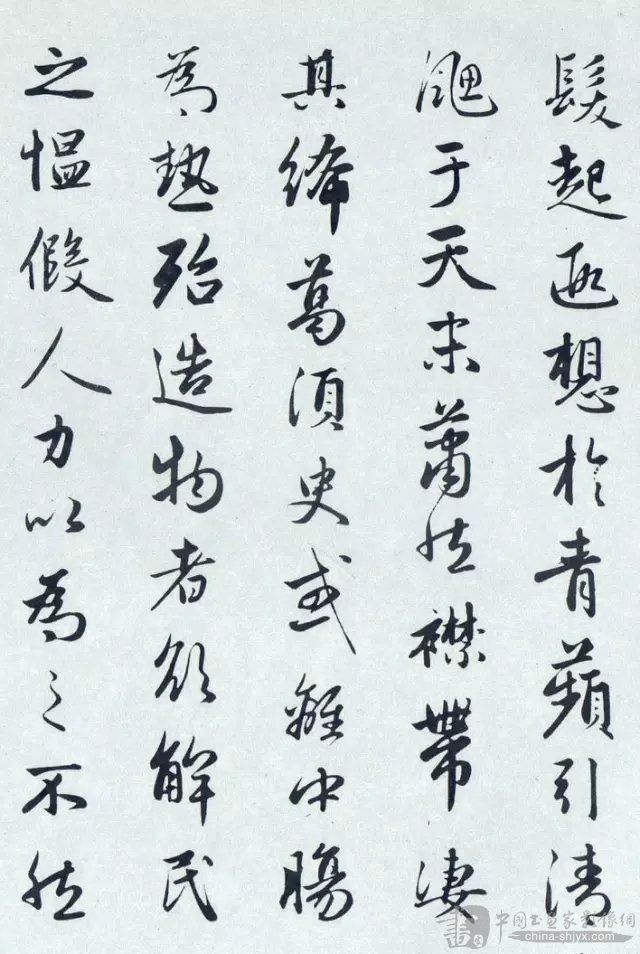 髮起遐想於青蘋引清
颸于天末蕭然襟帶淒
其絺葛須臾或離中腸
為熱殆造物者欲解民
之愠假人力以為之不然
中國書畫家影像網
china-shjyx.com